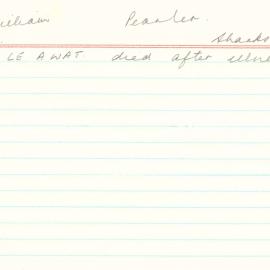 william Pearler.
Shanks
LE AWAT died after illne